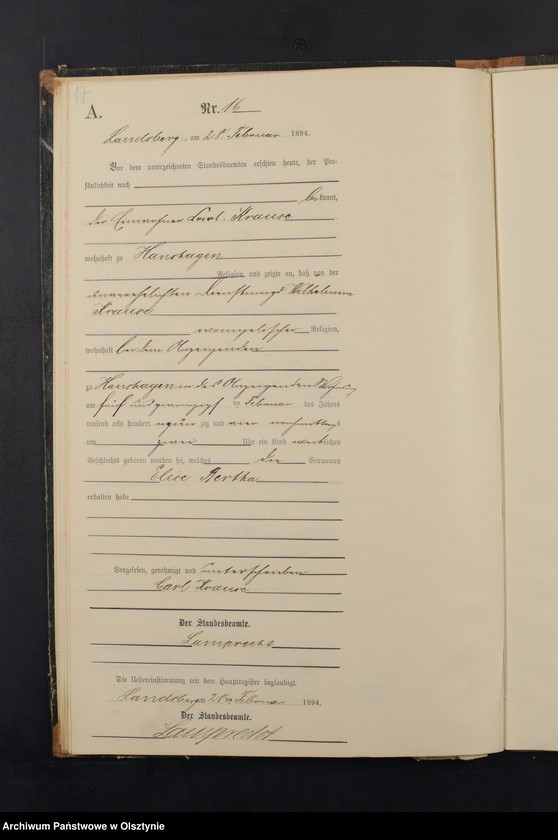 17
A.
Nr. 16
Landsberg, am 28ten Februar 1894.
Vor dem unterzeichneten Standesbeamten erschien heute, der Per-
sönlichkeit nach
bekannt,
der Einwohner Carl Krause
wohnhaft zu Hanshagen
Religion, und zeigte an, daß von der
unverehelichten Dienstmagd Wilhelmine
Krause
evangelischer Religion,
wohnhaft bei dem Anzeigenden
zu Hanshagen in des Anzeigenden Wohnung
am fünf und zwanzigsten Februar des Jahres
tausend acht hundert neun zig und vier nachmittags
um zwei Uhr ein Kind weiblichen
Geschlechts geboren worden sei, welches die Vornamen
Elise Bertha
erhalten habe
Vorgelesen, genehmigt und unterschrieben
Carl Krause
Der Standesbeamte.
Lamprecht
Die Uebereinstimmung mit dem Hauptregister beglaubigt.
Landsberg am 28ten Februar 1894.
Der Standesbeamte.
Lamprecht
Archiwum Państwowe w Olsztynie